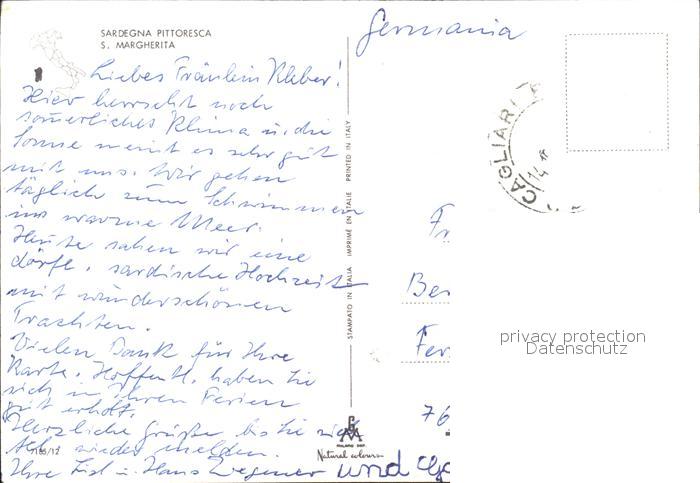 SARDEGNA PITTORESCA
S. MARGHERITA
Germania
Liebes Fräulein Kleber!
Hier herrscht noch
somerliches Klima u. die
Sonne meint es sehr gut
mit uns. Wir gehen
täglich zum Schwimmen
ins warme Meer.
Heute sahen wir eine
dörfl. sardische Hochzeit
mit wunderschönen
Trachten.
Vielen Dank für Ihre
Karte. Hoffentl. haben Sie
sich in Ihren Ferien
gut erholt.
Herzliche Grüße bis Sie
wieder melden.
Ihre u. Hans Wegener und
STAMPATO IN ITALIA IMPRIMÉ EN ITALIE PRINTED IN ITALY
CAGLIARI
14
Fr
Ber
Fer
76
privacy protection
Datenschutz
MILANO DEP.
Natural colours
7165/12